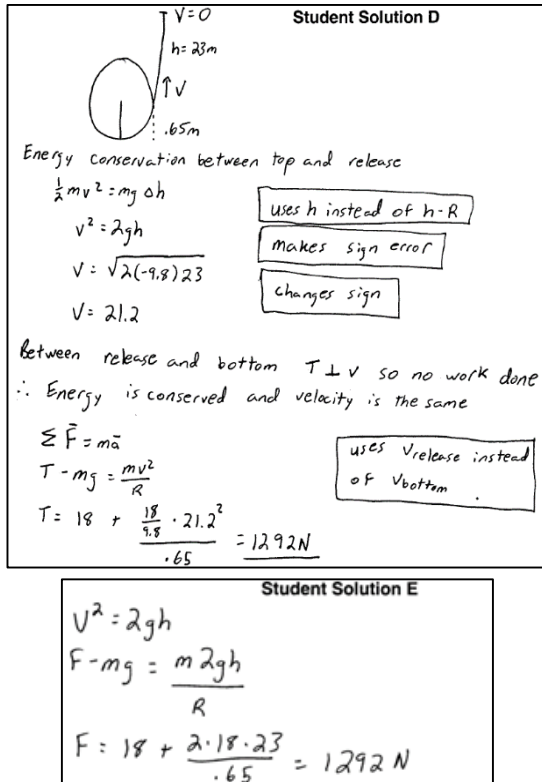 Student Solution D
V=0
h=23m
↑V
.65m
Energy conservation between top and release
½mv²=mgΔh
v²=2gh
V=√2(-9.8)23
V=21.2
uses h instead of h-R
makes sign error
changes sign
Between release and bottom T⊥v so no work done
∴ Energy is conserved and velocity is the same
ΣF⃗=ma⃗
T-mg=mv²/R
T=18+18/9.8·21.2²/.65=1292N
uses Vrelease instead
of Vbottom.
Student Solution E
V²=2gh
F-mg=m2gh/R
F=18+2·18·23/.65=1292N